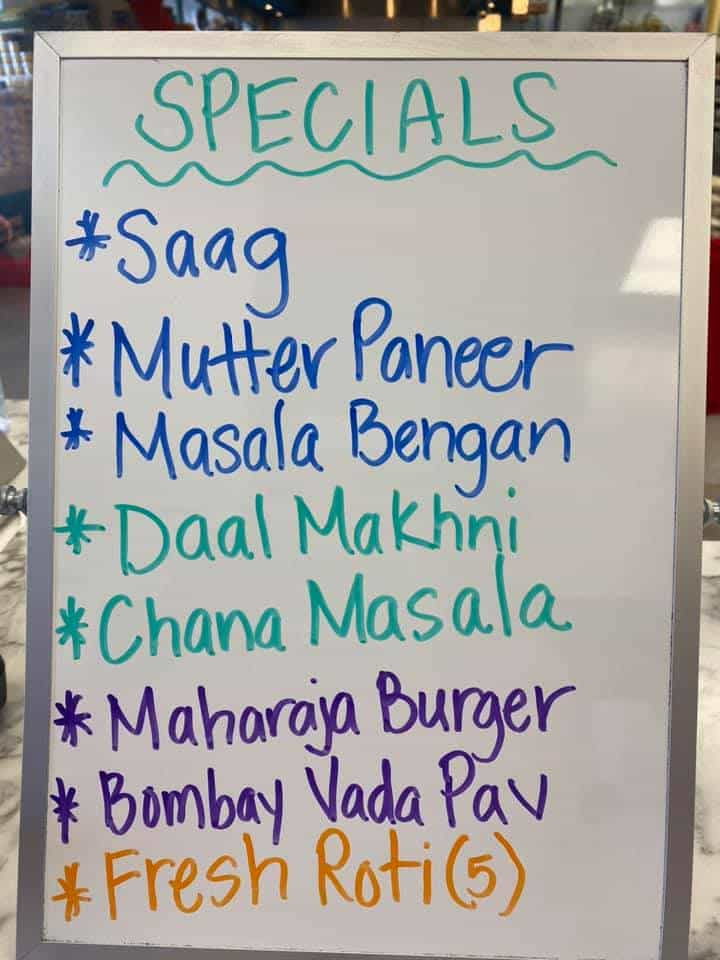 SPECIALS
*Saag
*Mutter Paneer
*Masala Bengan
*Daal Makhni
*Chana Masala
*Maharaja Burger
*Bombay Vada Pav
*Fresh Roti(5)